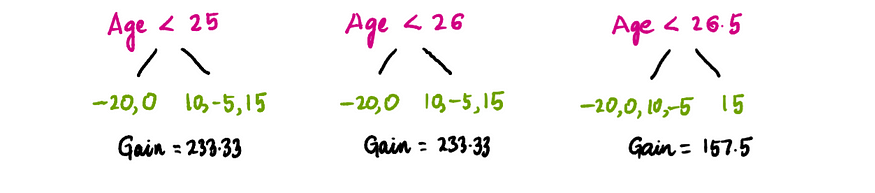 Age < 25
-20,0 10,-5,15
Gain = 233.33
Age < 26
-20,0 10,-5,15
Gain = 233.33
Age < 26.5
-20,0,10,-5 15
Gain = 157.5